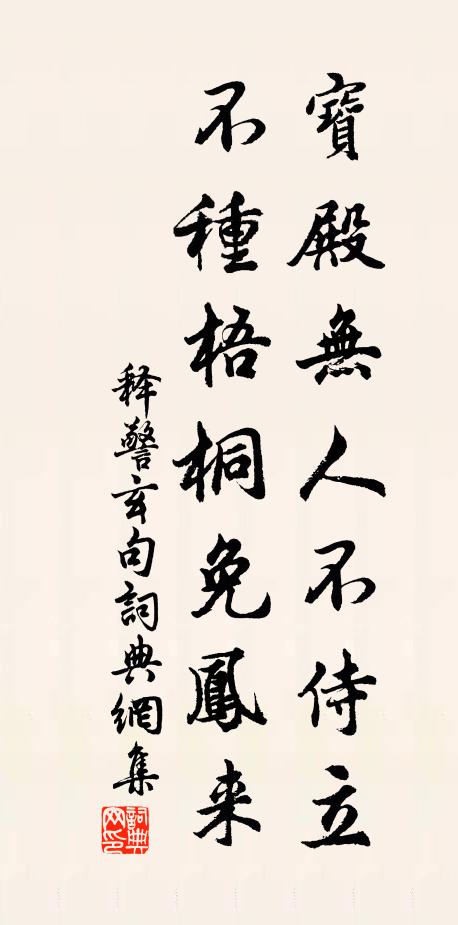 寶殿無人不侍立
不種梧桐免鳳來
释警玄句詞典網集
詞典网印